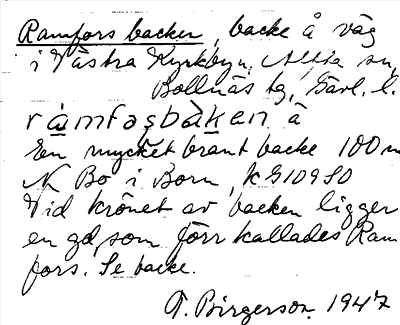 Ramfors backen, backe å väg
i Västra Kyrkbyn, Alfta sn,
Bollnäs tg, Gävl. l.
råmfașbàken å
En mycket brant backe 100 m
N Bo i Born, k G10980
Vid krönet av backen ligger
en gd, som förr kallades Ram
fors. Se backe.
T. Birgerson 1947